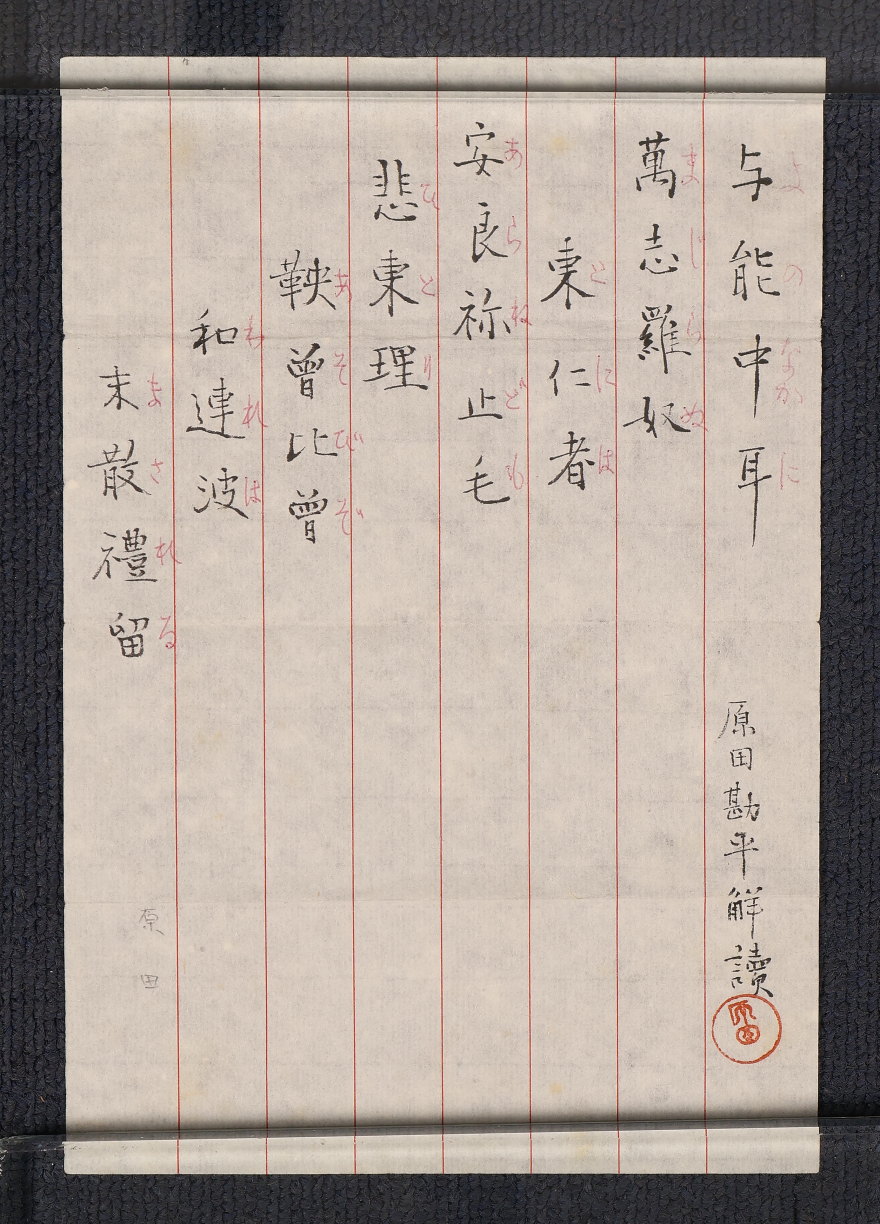 与能中耳
よのなかに
原田勘平解讀
萬志羅奴
まじらぬ
東仁者
とには
安良祢止毛
あらねども
悲東理
ひとり
鞅曽比曽
あそびぞ
和連波
われは
末散禮留
まされる
原田